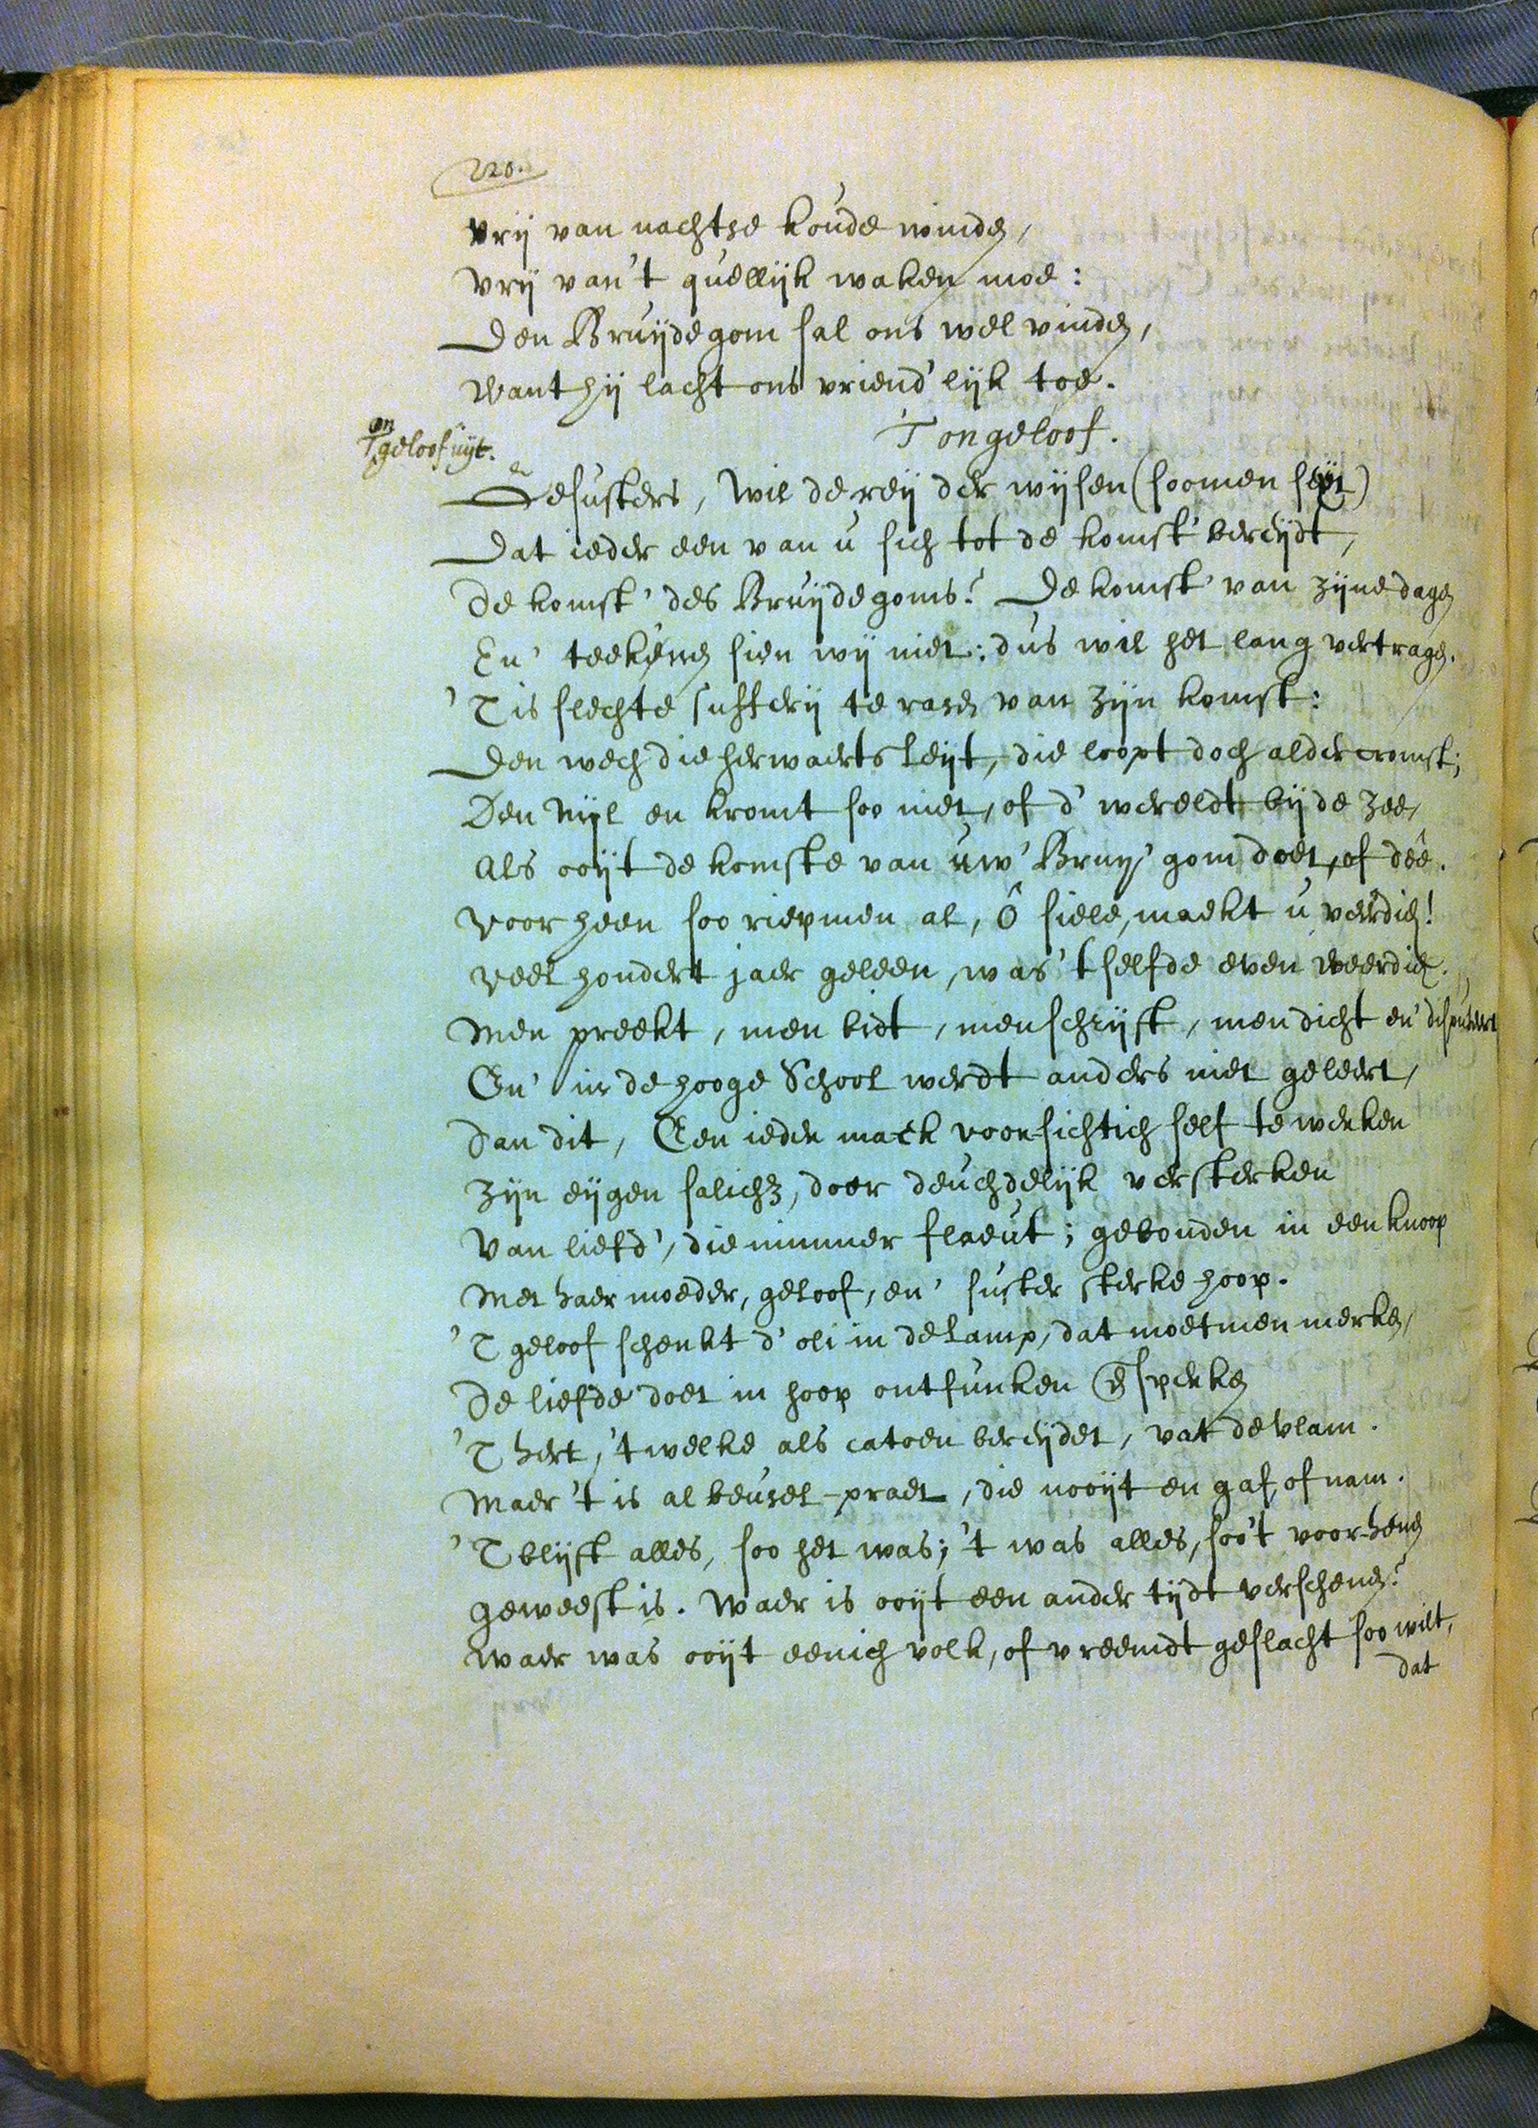 220.
Vrij van nachtse koude winden,
Vrij van't quellijk waken moe:
Den Bruijdegom sal ons wel vinden,
Want hij lacht ons vriend'lijk toe.
T ongeloof.
T'ongeloof uijt.
Gesusters, wil de reij der wijsen (soomen seijt)
Dat ieder een van u sich tot de komst' bereijdt,
De komst' des Bruijdegoms? De komst' van zijne dagen
En' teekenen sien wij niet: dus wil het lang vertragen.
'T is slechte sufferij te rasen van zijn komst:
Den wech die herwaerts leijt, die loopt doch aldercromst;
Den Nijl en kromt soo niet, of d' wereldt bij de zee,
Als ooijt de komste van uw' Bruij'gom doet, of deê.
Voor heen soo riepmen al, ô siele, maekt u veerdich!
Veel hondert jaer geleen, was 't selfde even weerdich.
Men preekt, men bidt, men schrijft, men dicht en' disputeert
En' in de hooge School werdt anders niet geleert,
Dan dit, Een ieder maek voorsichtich self te werken
Zijn eijgen salicht, door deuchdelijk versterken
Van liefd', die nimmer flaeut; gebonden in een knoop
Met haer moeder, geloof, en' suster sterke hoop.
'T geloof schenkt d' oli in de lamp, dat moetmen merken,
De liefde doet in hoop ontfunken en sperken
'T hert, 't welke als catoen bereijdet, vat de vlam.
Maer 't is al beusel-praet, die nooijt en gaf, of nam.
'T blijft alles, soo het was; 't was alles, soo't voor-henen
Geweest is. Waer is ooijt een ander tijdt verschenen?
Waer was ooijt eenich volk, of vreemdt geslacht soo wilt,
dat